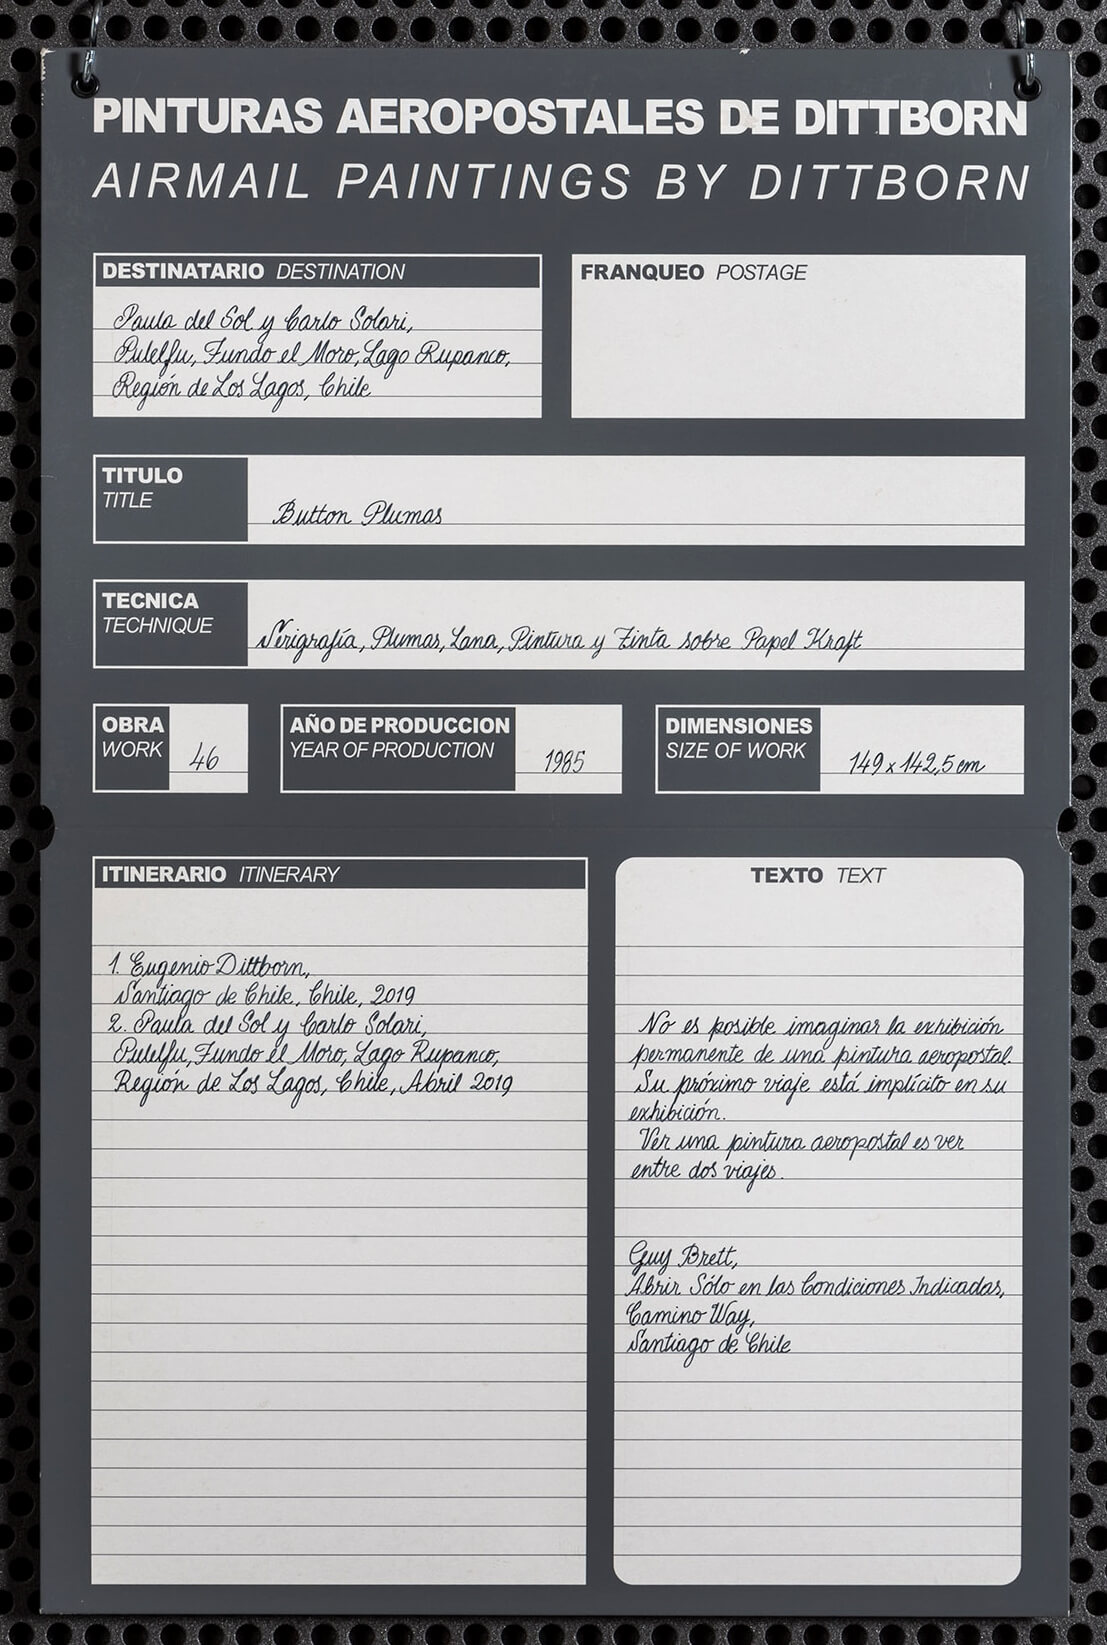 PINTURAS AEROPOSTALES DE DITTBORN
AIRMAIL PAINTINGS BY DITTBORN
DESTINATARIO DESTINATION
Paula del Sol y Carlo Solari,
Pulelfu, Fundo el Moro, Lago Rupanco,
Región de Los Lagos, Chile
FRANQUEO POSTAGE
TITULO
TITLE
Button Plumas
TECNICA
TECHNIQUE
Serigrafía, Plumas, Lana, Pintura y Tinta sobre Papel Kraft
OBRA
WORK
46
AÑO DE PRODUCCION
YEAR OF PRODUCTION
1985
DIMENSIONES
SIZE OF WORK
149 x 142,5 cm
ITINERARIO ITINERARY
1. Eugenio Dittborn,
Santiago de Chile, Chile, 2019
2. Paula del Sol y Carlo Solari,
Pulelfu, Fundo el Moro, Lago Rupanco,
Región de Los Lagos, Chile, Abril 2019
TEXTO TEXT
No es posible imaginar la exhibición
permanente de una pintura aeropostal.
Su próximo viaje está implícito en su
exhibición.
Ver una pintura aeropostal es ver
entre dos viajes.
Guy Brett,
Abrir Sólo en las Condiciones Indicadas,
Camino Way,
Santiago de Chile